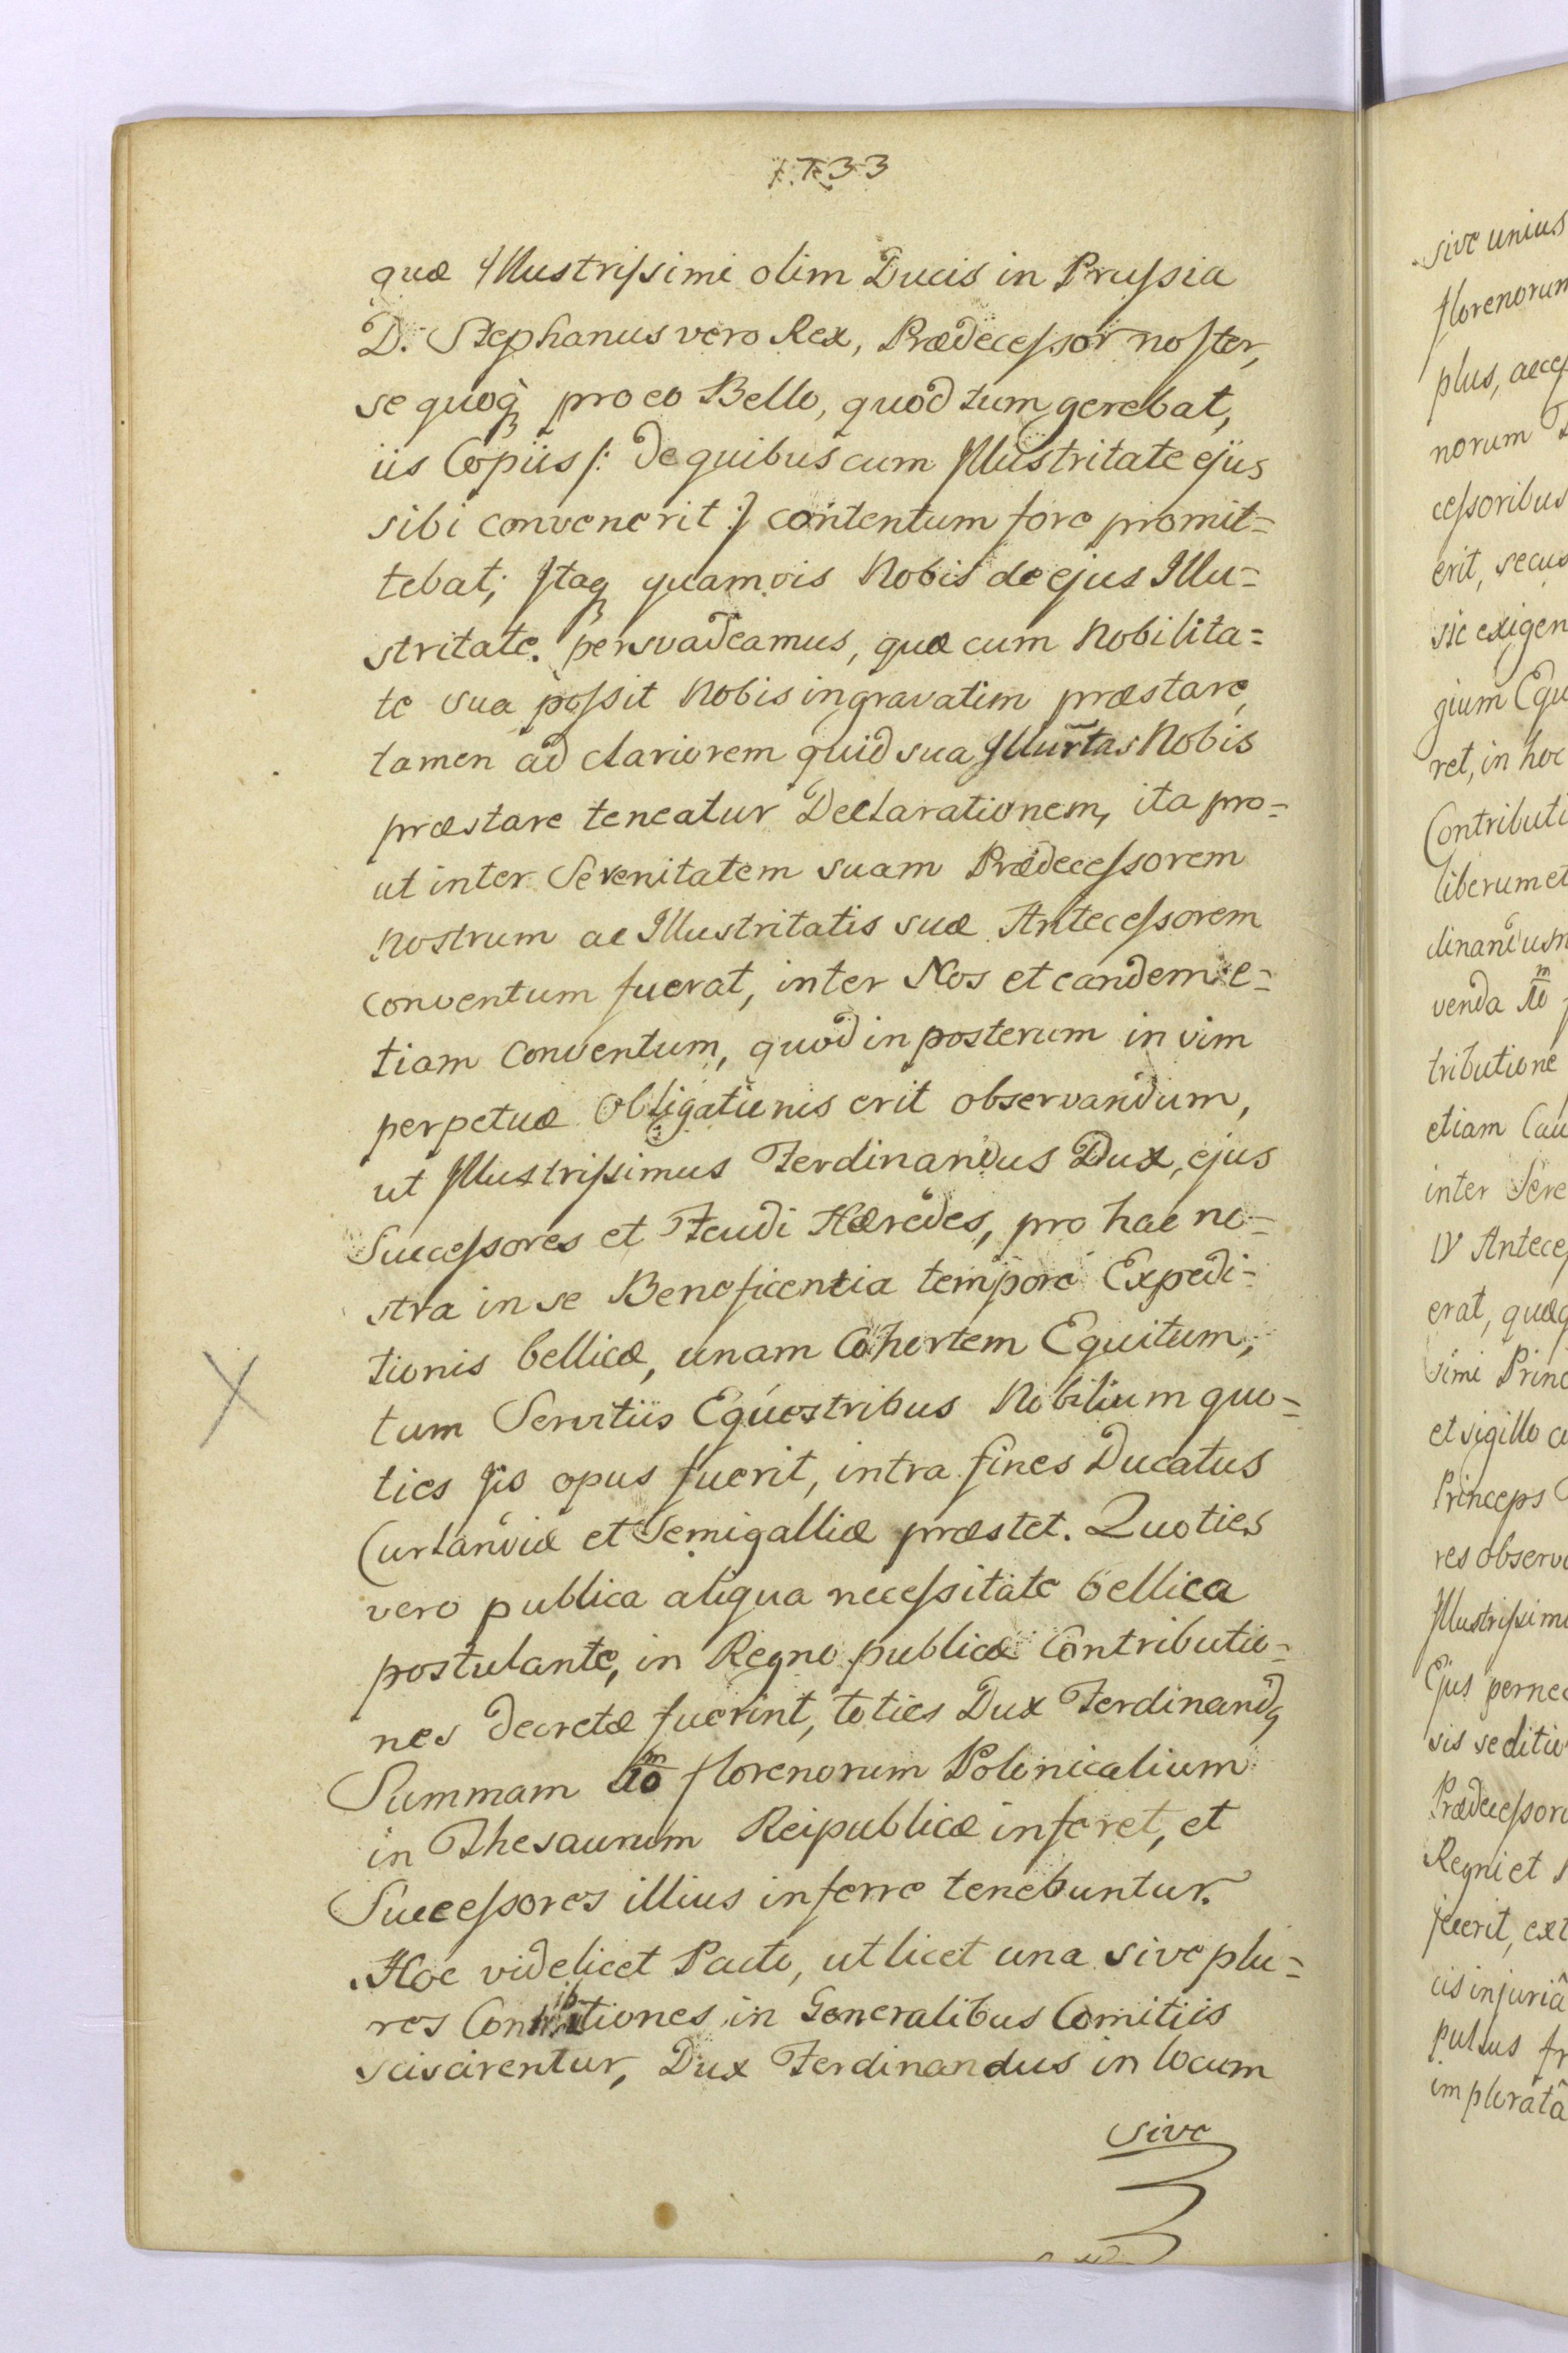 1733
quæ Illustrissimi olim Ducis in Prussia
D. Stephanus vero Rex, Prædecessor noster,
se quoq pro eo Bello, quod tum gerebat,
iis Copiis /: de quibus cum Illustritate ejus
sibi convenerit :/ contentum fore promit=
tebat; Itaq quamvis Nobis de ejus Illu=
stritate persvadeamus, quæ cum Nobilita=
te sua possit Nobis ingravatim præstare,
tamen ad clariorem quid sua Illurtas Nobis
præstare teneatur Declarationem, ita pro=
ut inter Serenitatem suam Prædecessorem
Nostrum ac Illustritatis suæ Antecessorem
conventum fuerat, inter Nos et eandem e=
tiam conventum, quod in posterum in vim
perpetuæ Obligationis erit observandum,
ut Illustrissimus Ferdinandus Dux, ejus
Successores et Feudi Hæredes, pro hac no=
stra in se Beneficentia tempore Expedi=
tionis bellicæ, unam Cohortem Equitum,
tum Servitiis Equestribus Nobilium quo=
ties iis opus fuerit, intra fines Ducatus
Curlandiæ et Semigalliæ præstet. Quoties
vero publica aliqua necessitate bellica
postulante, in Regno publicæ Contributio=
nes decretæ fuerint, toties Dux Ferdinandq
Summam 10 m florenorum Polonicalium
in Thesaurum Reipublicæ inferet, et
Successores illius inferre tenebuntur.
Hoc videlicet Pacto, ut licet una sive plu=
res Contributiones in Generalibus Comitiis
sciscirentur, Dux Ferdinandus in locum
sive
sive unius
florenorum
plus,
norum
cessoribus
erit, secus
sic exigen
gium Equ
ret, in hoc
Contributi
liberum et
dinandus
venda 10 m
tributione
etiam Cau
inter Sere
IV Antece
erat, quæq
simi Princ
et sigillo
Princeps
res observ
Illustrissim
Ejus perne
sis seditio
Prædecessor
Regni et
jecerit, ext
cis injuriâ
pulsus
imploratâ